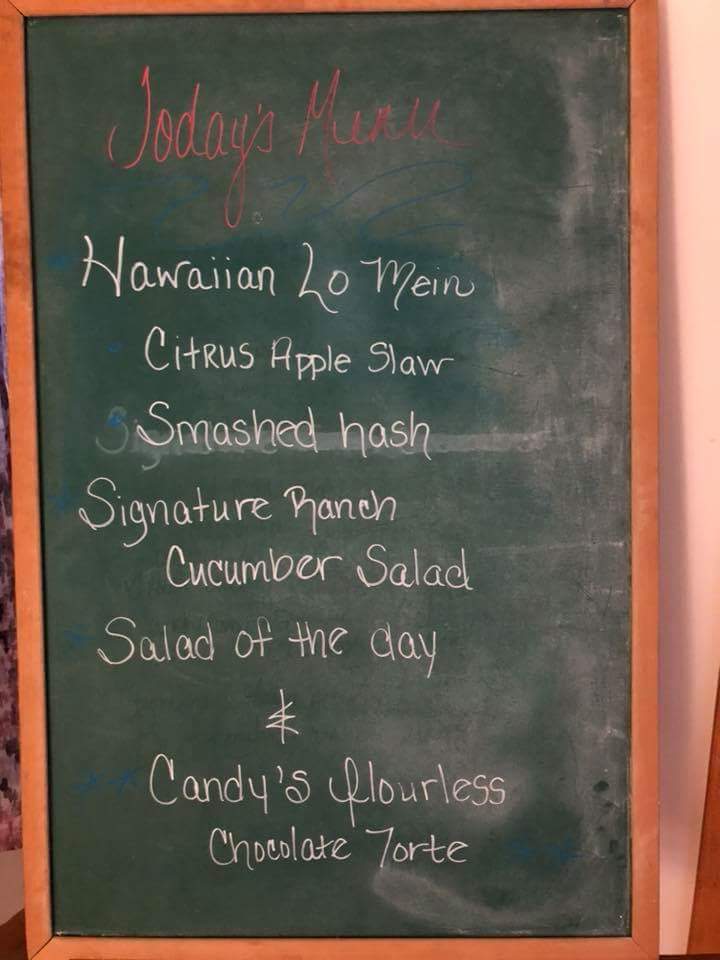 Today's Menu
Hawaiian Lo Mein
Citrus Apple Slaw
Smashed hash
Signature Ranch
Cucumber Salad
Salad of the day
&
Candy's flourless
Chocolate Torte